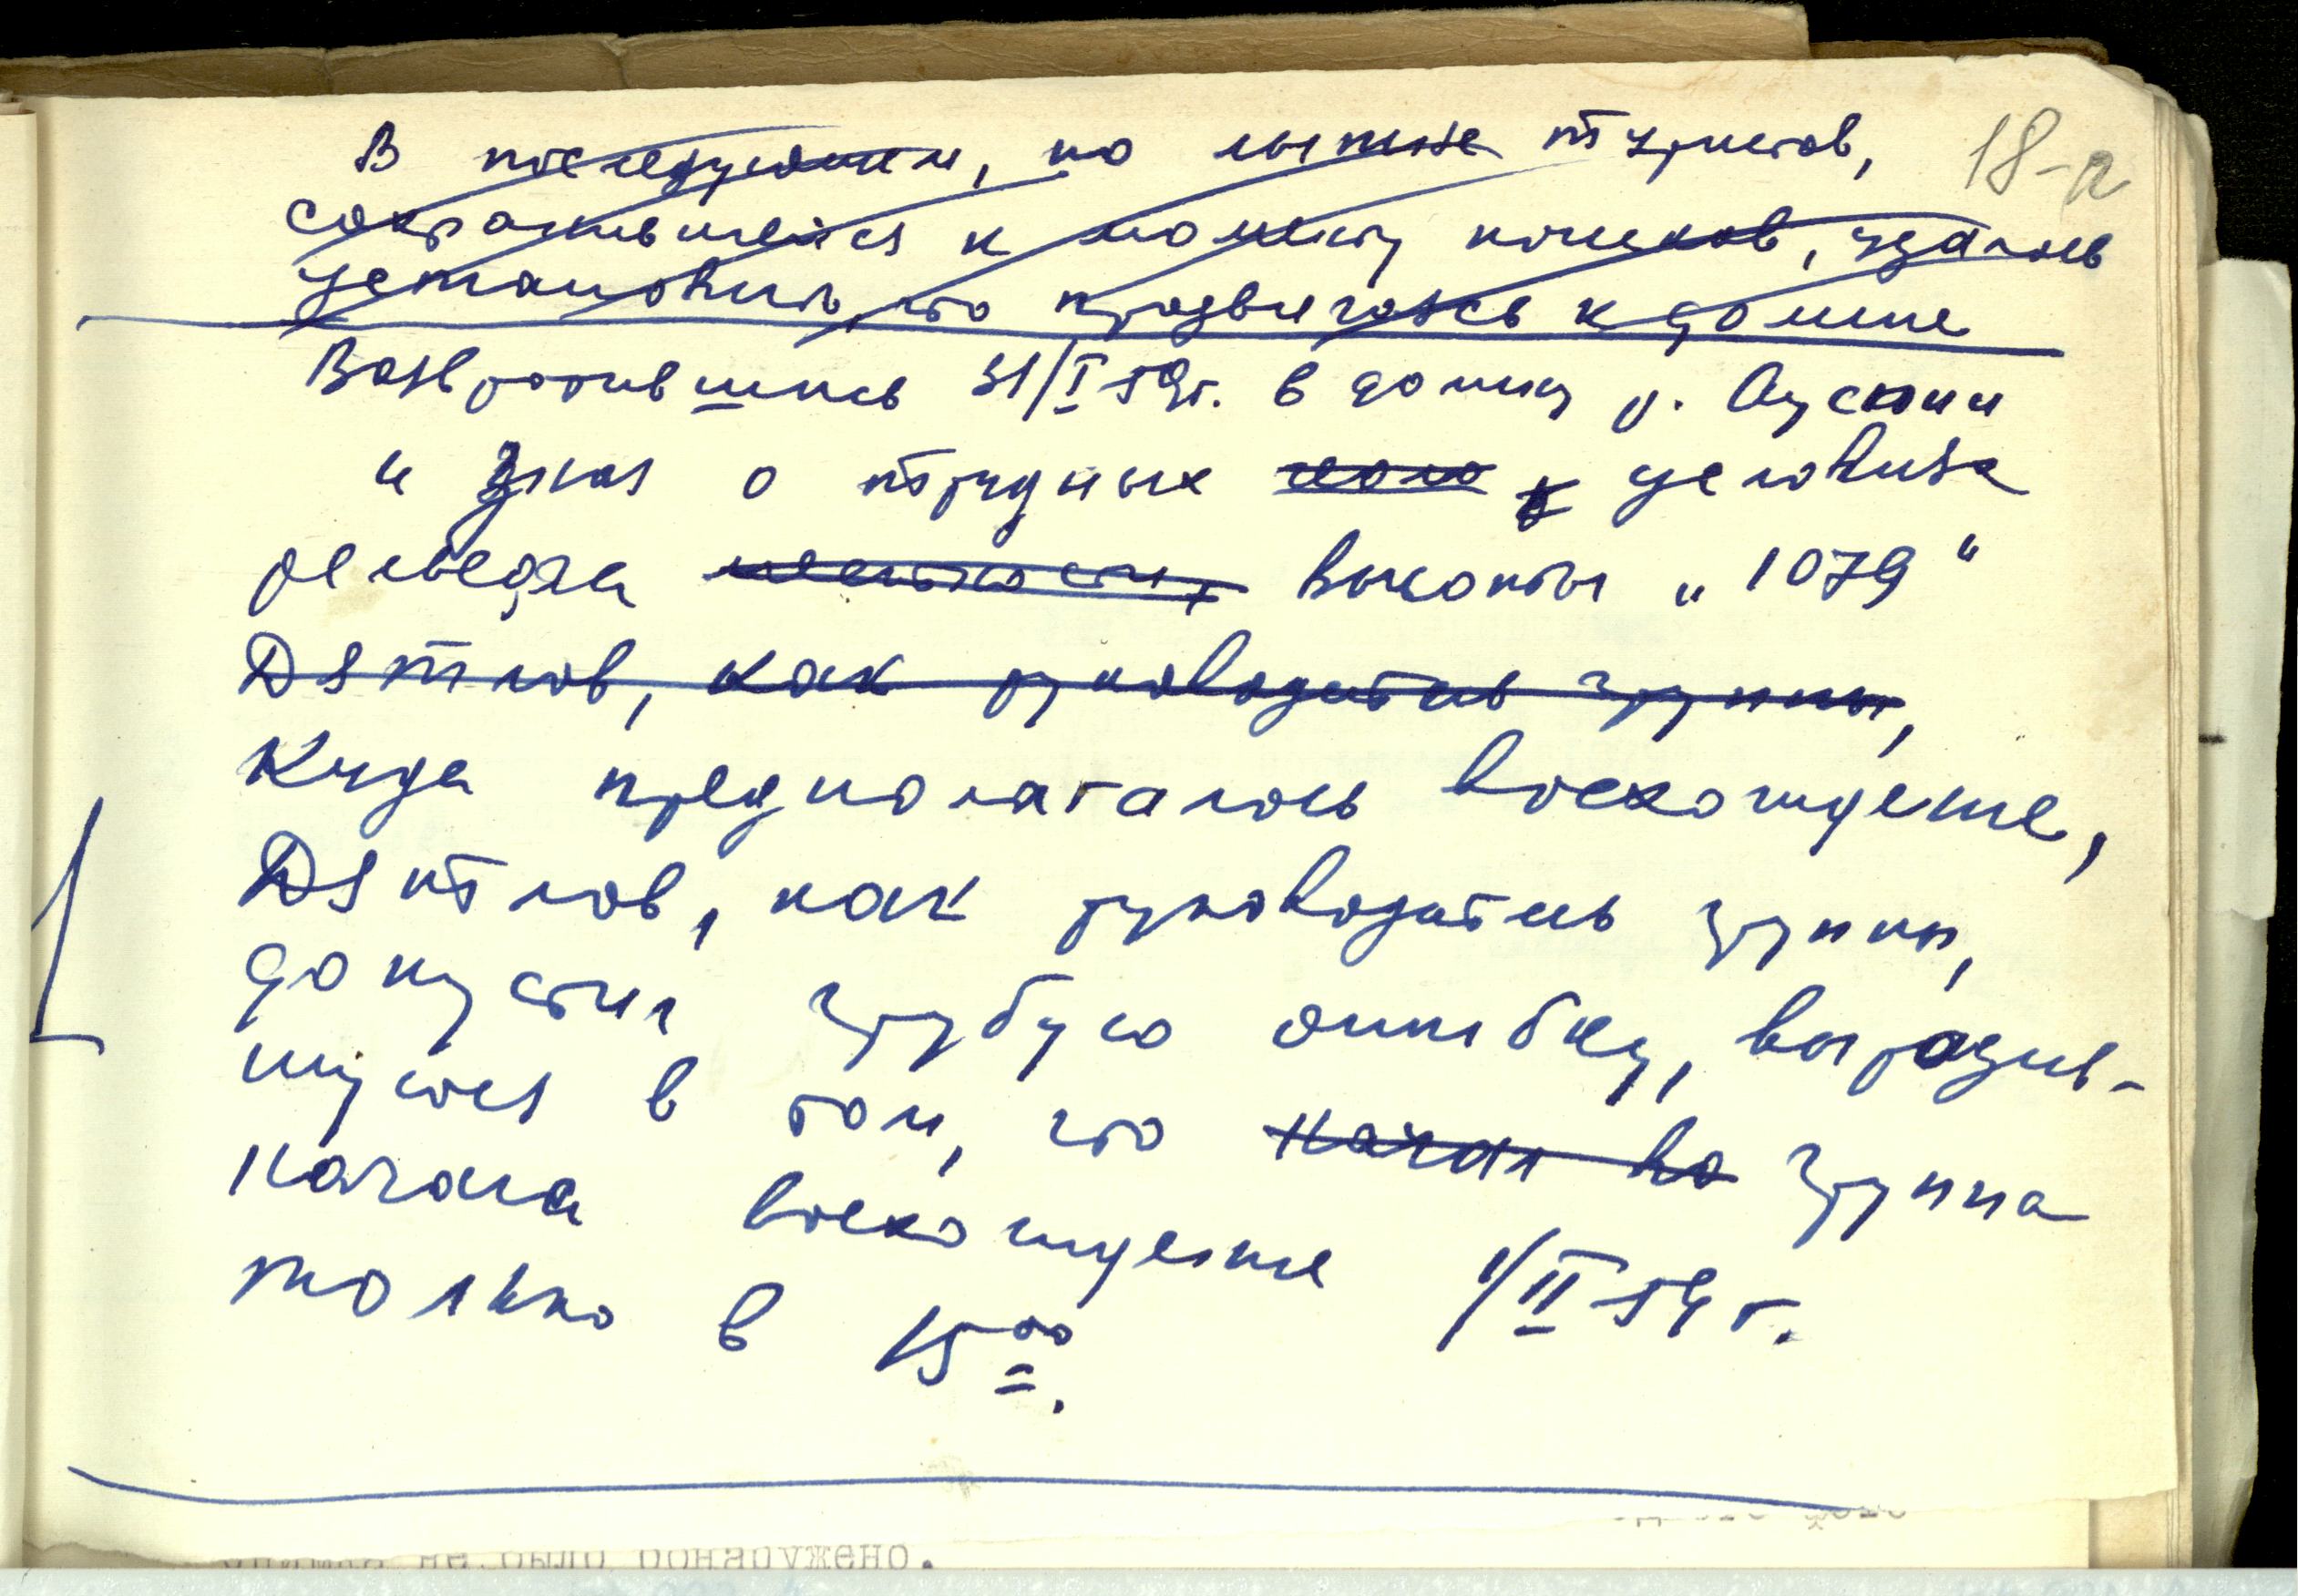 18-а
В последующем, по лыжне туристов,
сохранившейся к моменту поисков, удалось
установить, что продвигаясь к долине
Возвратившись 31/I 59г. в долину р. Ауспии
и зная о трудных условиях
рельефа местности, высоты „1079“
Дятлов, как руководитель группы,
куда предполагалось восхождение,
Дятлов, как руководитель группы,
допустил грубую ошибку, выразив-
шуюся в том, что начал во группа
начала восхождение 1/II 59 г.
только в 15 00.
не было обнаружено.